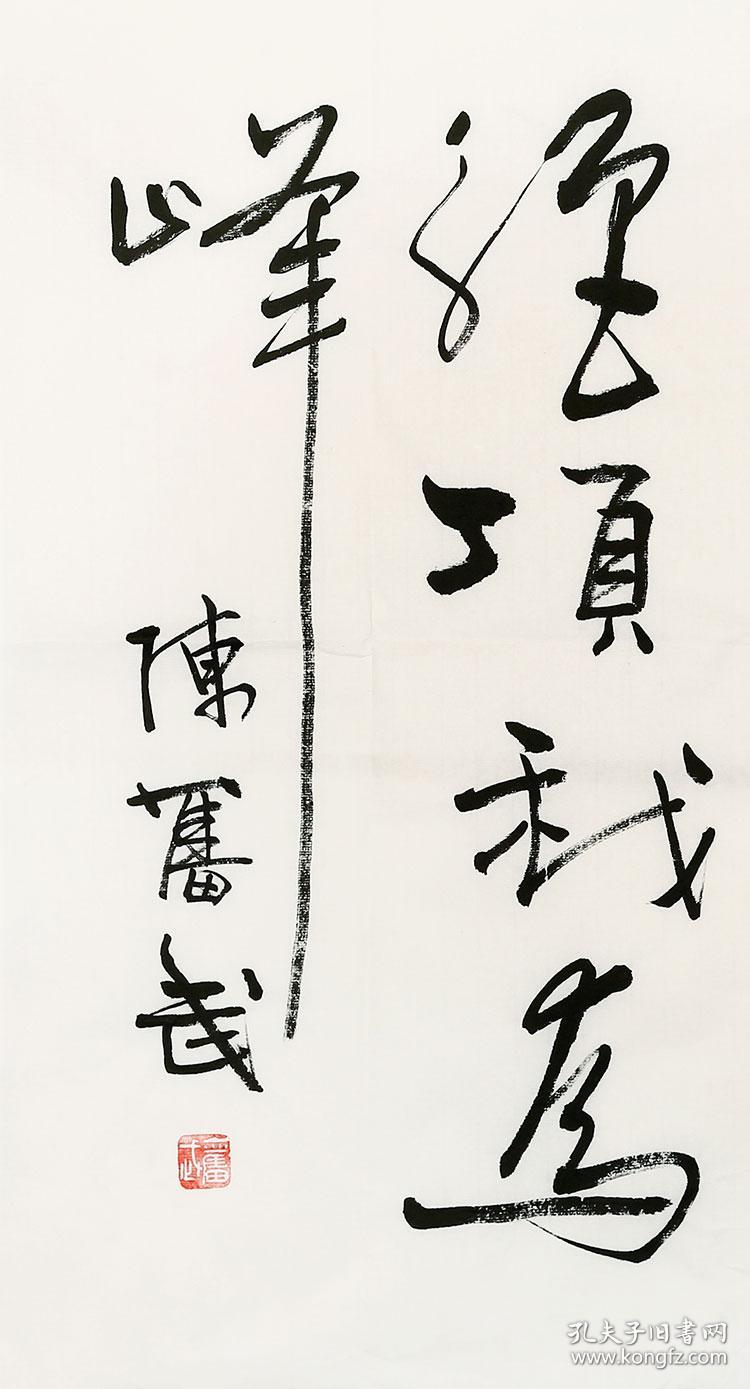 絕頂我為
峰
陳奮武
奮武
孔夫子旧书网
www.kongfz.com